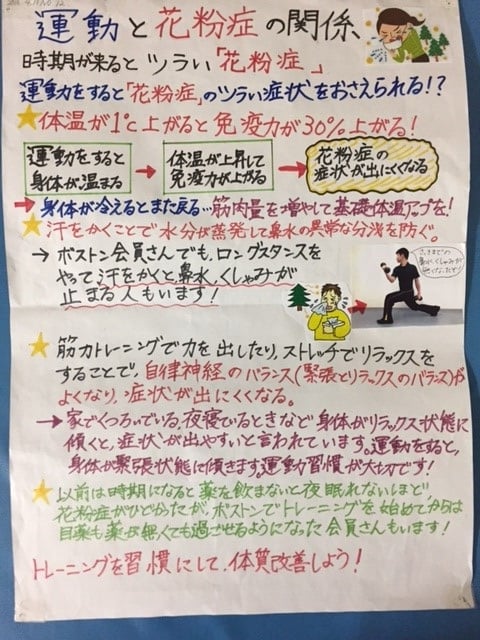 運動と花粉症の関係
時期が来るとツラい「花粉症」
運動をすると「花粉症」のツラい症状をおさえられる!?
★体温が1℃上がると免疫力が30%上がる!
運動をすると
身体が温まる
→
体温が上昇して
免疫力が上がる
→
花粉症の
症状が出にくくなる
→身体が冷えるとまた戻る…筋肉量を増やして基礎体温アップを!
★汗をかくことで水分が蒸発して鼻水の異常な分泌を防ぐ。
→ボストン会員さんでも、ロングスタンスを
やって汗をかくと、鼻水、くしゃみが
止まる人もいます!
★筋力トレーニングで力を出したり、ストレッチでリラックスを
することで、自律神経のバランス(緊張とリラックスのバランス)が
よくなり、症状が出にくくなる。
→家でくつろいでいる、夜寝ているときなど身体がリラックス状態に
傾くと、症状が出やすいと言われています。運動をすると、
身体が緊張状態に傾きます。運動習慣が大切です!
★以前は時期になると薬を飲まないと夜眠れないほど、
花粉症がひどかったが、ボストンでトレーニングを始めてからは
目薬も薬が無くても過ごせるようになった会員さんもいます!
トレーニングを習慣にして、体質改善しよう!